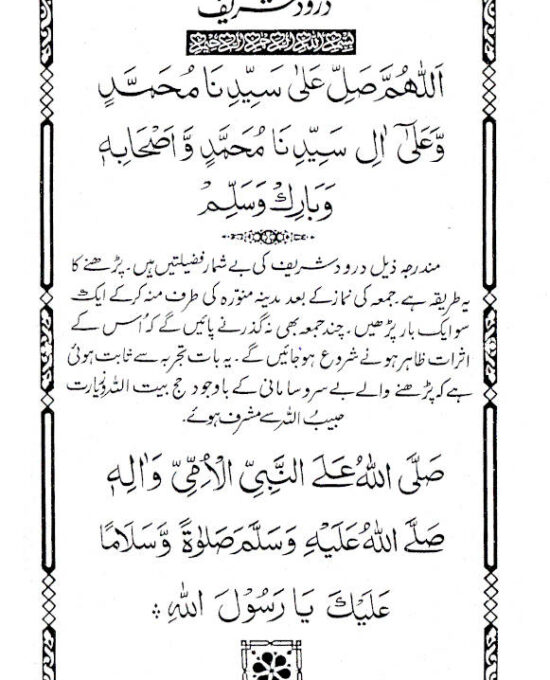 درود شریف
بسم الله الرحمن الرحيم
اَللّٰهُمَّ صَلِّ عَلٰى سَيِّدِنَا مُحَمَّدٍ
وَّعَلٰٓى اٰلِ سَيِّدِنَا مُحَمَّدٍ وَّاَصْحَابِهٖ
وَبَارِكْ وَسَلِّمْ
مندرجہ ذیل درود شریف کی بے شمار فضیلتیں ہیں۔ پڑھنے کا
یہ طریقہ ہے۔ جمعہ کی نماز کے بعد مدینہ منوّرہ کی طرف منہ کر کے ایک
سو ایک بار پڑھیں۔ چند جمعہ بھی نہ گذرنے پائیں گے کہ اُس کے
اثرات ظاہر ہونے شروع ہو جائیں گے۔ یہ بات تجربہ سے ثابت ہوئی
ہے کہ پڑھنے والے بے سرو سامانی کے باوجود حج بیت اللہ و زیارت
حبیبُ اللہ سے مشرف ہوئے۔
صَلَّى اللهُ عَلَے النَّبِيِّ الْاُمِّيِّ وَاٰلِهٖ
صَلَّے اللهُ عَلَيْهِ وَسَلَّمَ صَلٰوةً وَّسَلَامًا
عَلَيْكَ يَا رَسُوْلَ اللهِ